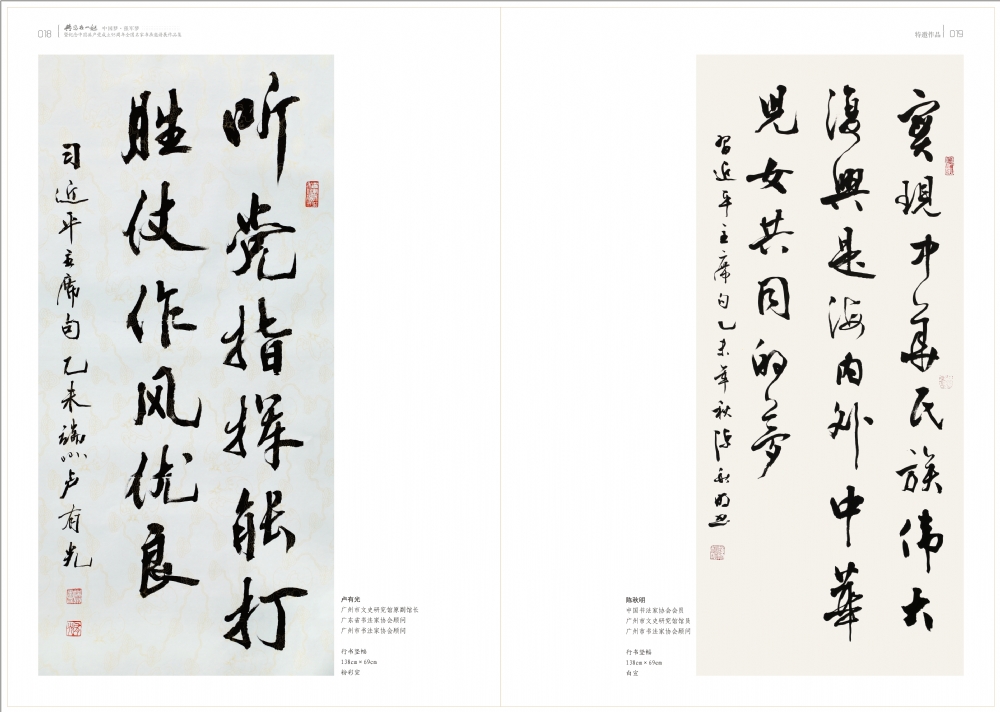 018
中国梦·强军梦
暨纪念中国共产党成立95周年全国名家书画邀请展作品集
听党指挥能打
胜仗作风优良
习近平主席句 乙未端 卢有光
卢有光
广州市文史研究馆原副馆长
广东省书法家协会顾问
广州市书法家协会顾问
行书竖幅
138cm×69cm
粉彩宣
特邀作品
019
實現中華民族伟大
復興是海内外中華
兒女共同的夢
習近平主席句乙未年秋陳秋明書
陈秋明
中国书法家协会会员
广州市文史研究馆馆员
广州市书法家协会顾问
行书竖幅
138cm×69cm
白宣